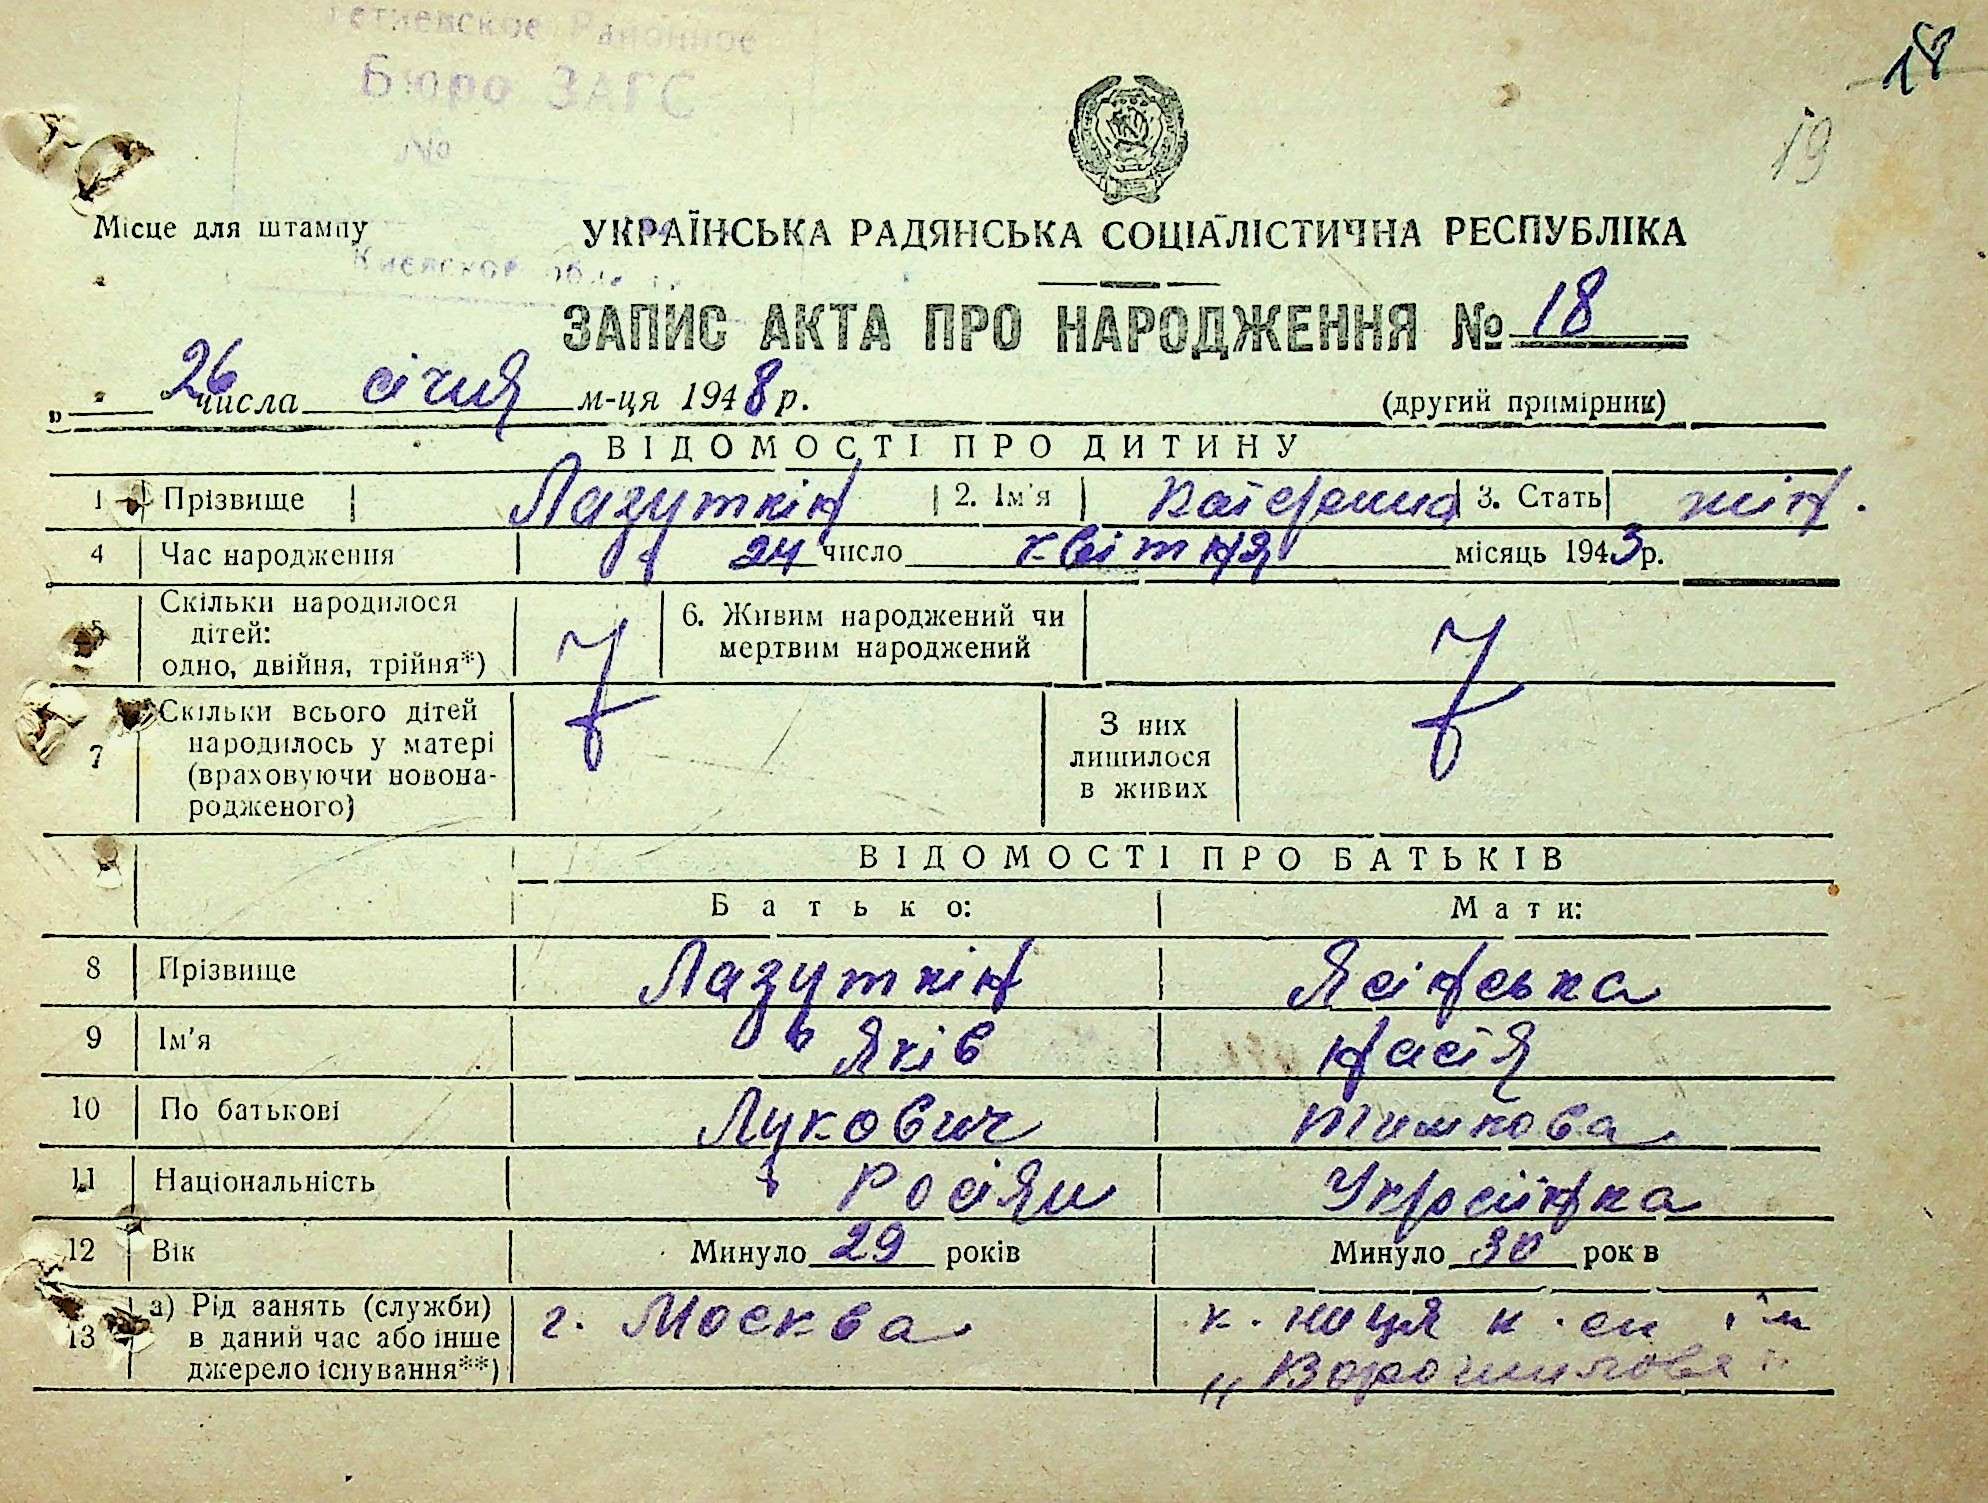 Бюро ЗАГС
№
18
19
Місце для штампу
УКРАЇНСЬКА РАДЯНСЬКА СОЦІАЛІСТИЧНА РЕСПУБЛІКА
ЗАПИС АКТА ПРО НАРОДЖЕННЯ № 18
26 числа січня м-ця 1948 р.
(другий примірник)
ВІДОМОСТІ ПРО ДИТИНУ
1 Прізвище Лазуткін 2. Ім'я Катерина 3. Стать жін.
4 Час народження 24 число квітня місяць 1943 р.
5 Скільки народилося дітей: одно, двійня, трійня*)
6. Живим народжений чи мертвим народжений
7 Скільки всього дітей народилось у матері (враховуючи новонародженого)
З них лишилося в живих
ВІДОМОСТІ ПРО БАТЬКІВ
Батько: Мати:
8 Прізвище Лазуткін Ясінська
9 Ім'я Яків Настя
10 По батькові Лукович Тимкова
11 Національність Росіян Українка
12 Вік Минуло 29 років Минуло 30 рок в
13 а) Рід занять (служби) в даний час або інше джерело існування**)
г. Москва
к. ниця к. ен ім
"Ворошилова"